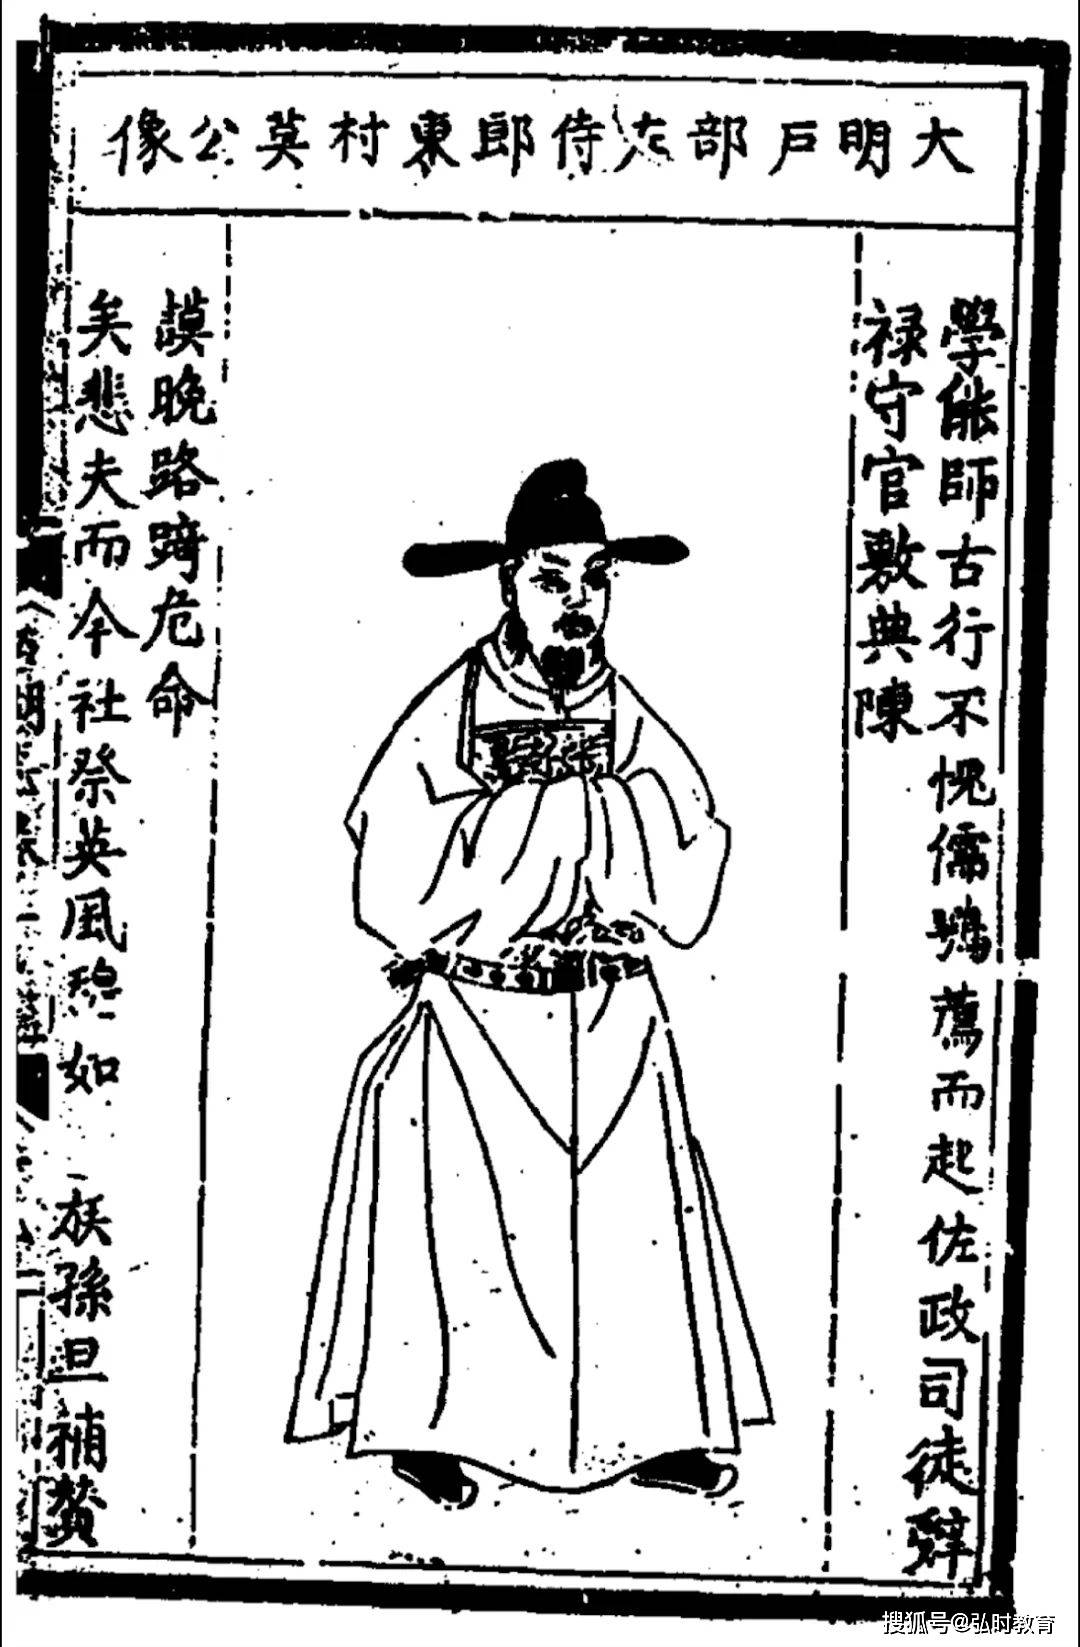 大明戶部左侍郎東村莫公像
學能師古行不愧儒鶚薦而起佐政司徒辭
禄守官敷典陳
謨晚路踦危命
矣悲夫而今社祭英風穆如 族孫旦補贊
搜狐号@弘时教育